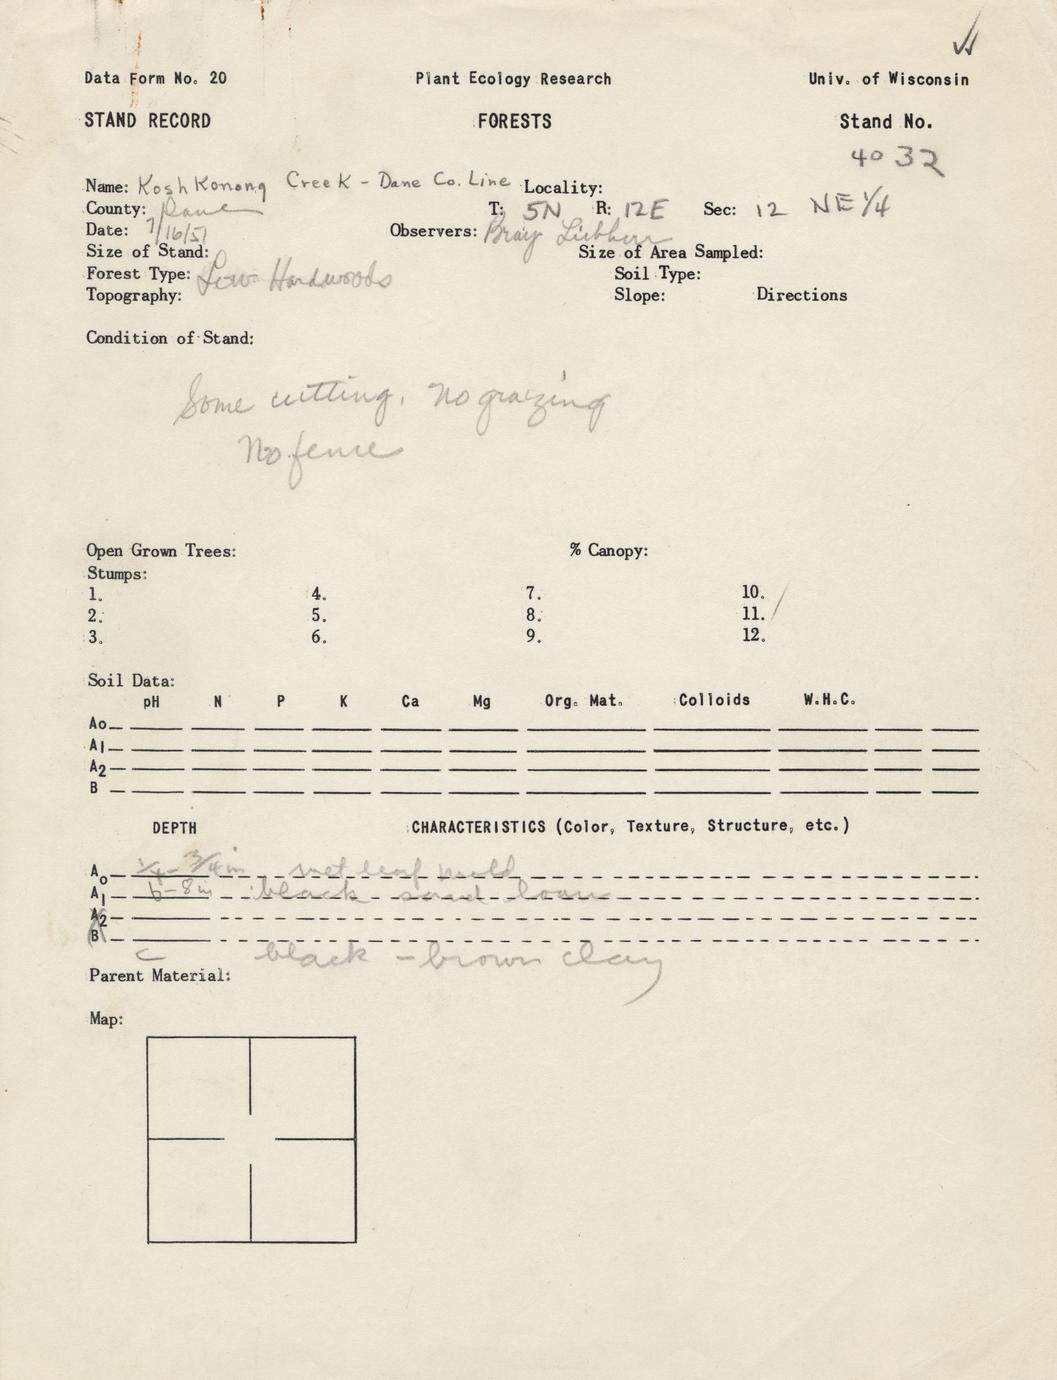 Data Form No. 20 Plant Ecology Research Univ. of Wisconsin
STAND RECORD FORESTS Stand No.
4032
Name: Koshkonong Creek - Dane Co. Line Locality:
County: Dane T: 5N R: 12E Sec: 12 NE 1/4
Date: 7/16/51 Observers: Bray
Size of Stand: Size of Area Sampled:
Forest Type: Low Hardwoods Soil Type:
Topography: Slope: Directions
Condition of Stand:
Some cutting, No grazing
No fence
Open Grown Trees: % Canopy:
Stumps:
1. 4. 7. 10.
2. 5. 8. 11.
3. 6. 9. 12.
Soil Data:
pH N P K Ca Mg Org. Mat. Colloids W.H.C.
Ao
A1
A2
B
DEPTH CHARACTERISTICS (Color, Texture, Structure, etc.)
Ao 1/4 - 3/4 in wet leaf mold
A1 6-8 in black sand loam
A2
B
C black - brown clay
Parent Material:
Map: